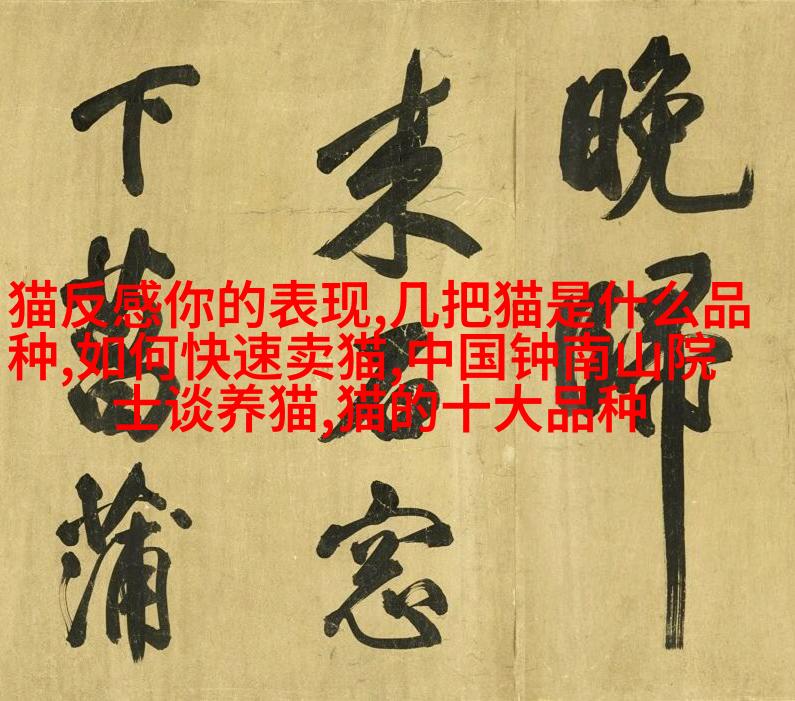 晚歸
来窓
下菖蒲
猫反感你的表现,几把猫是什么品
种,如何快速卖猫,中国钟南山院
士谈养猫,猫的十大品种